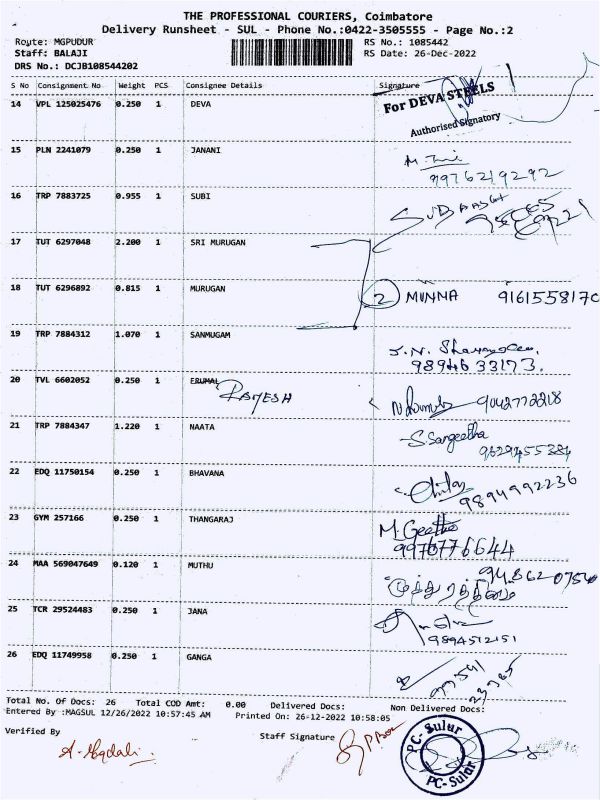 THE PROFESSIONAL COURIERS, Coimbatore
Delivery Runsheet - SUL - Phone No.:0422-3505555 - Page No.:2
Route: MGPUDUR RS No.: 1085442
Staff: BALAJI RS Date: 26-Dec-2022
DRS No.: DCJB108544202
S No Consignment No Weight PCS Consignee Details Signature
14 VPL 125025476 0.250 1 DEVA For DEVA STEELS
Authorised Signatory
15 PLN 2241079 0.250 1 JANANI
9976219292
16 TRP 7883725 0.955 1 SUBI
17 TUT 6297048 2.200 1 SRI MURUGAN
18 TUT 6296892 0.815 1 MURUGAN 2 MUNNA 916155817C
19 TRP 7884312 1.070 1 SANMUGAM
98946 33173.
20 TVL 6602052 0.250 1 ERUMAL RAMESH 9042772218
21 TRP 7884347 1.220 1 NAATA S Sangeetha
9629455384
22 EDQ 11750154 0.250 1 BHAVANA
9894992236
23 GYM 257166 0.250 1 THANGARAJ M. Geetha
9976776644
24 MAA 569047649 0.120 1 MUTHU 948620754
25 TCR 29524483 0.250 1 JANA
9894512151
26 EDQ 11749958 0.250 1 GANGA
Total No. Of Docs: 26 Total COD Amt: 0.00 Delivered Docs: Non Delivered Docs:
Entered By :MAGSUL 12/26/2022 10:57:45 AM Printed On: 26-12-2022 10:58:05
Verified By Staff Signature
PC-Sulur
PC-Sulur